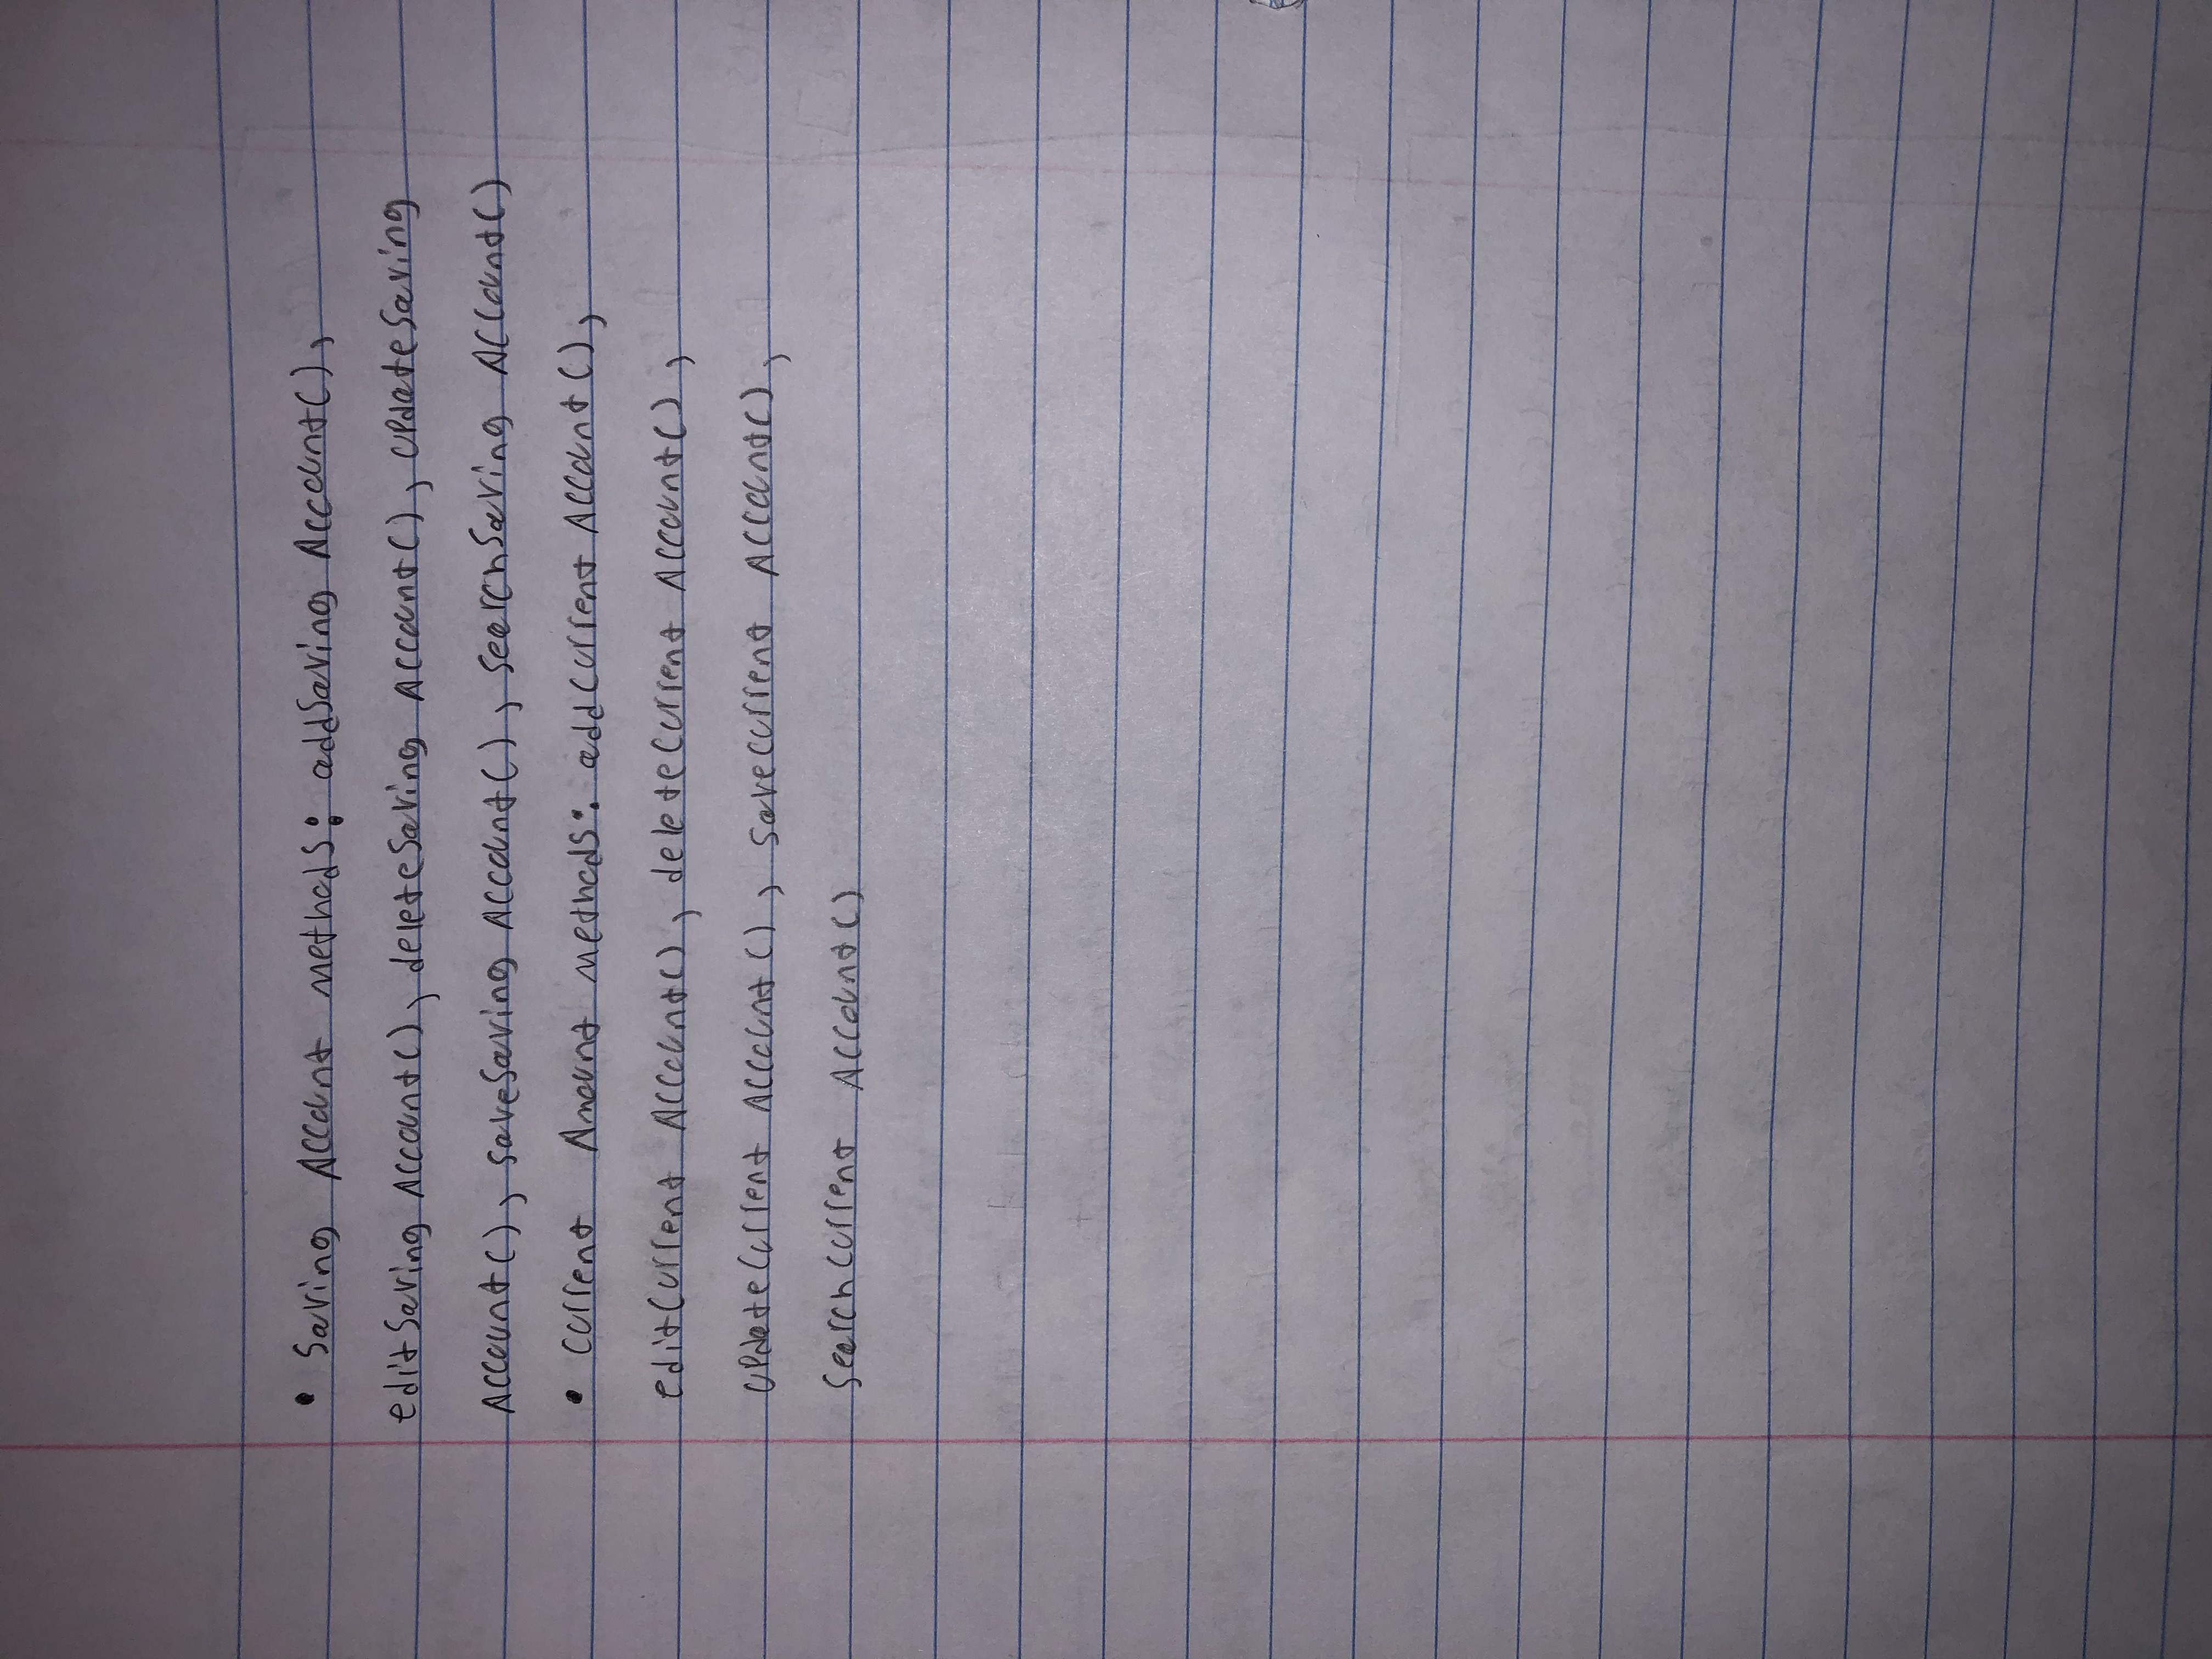 • Saving Account methods: addSaving Account(),
editSaving Account(), deleteSaving Account(), UpdateSaving
Account(), saveSaving Account(), SearchSaving Account()
• Current Amount methods: addCurrent Account(),
editCurrent Account(), deleteCurrent Account(),
UpdateCurrent Account(), saveCurrent Account(),
SearchCurrent Account()